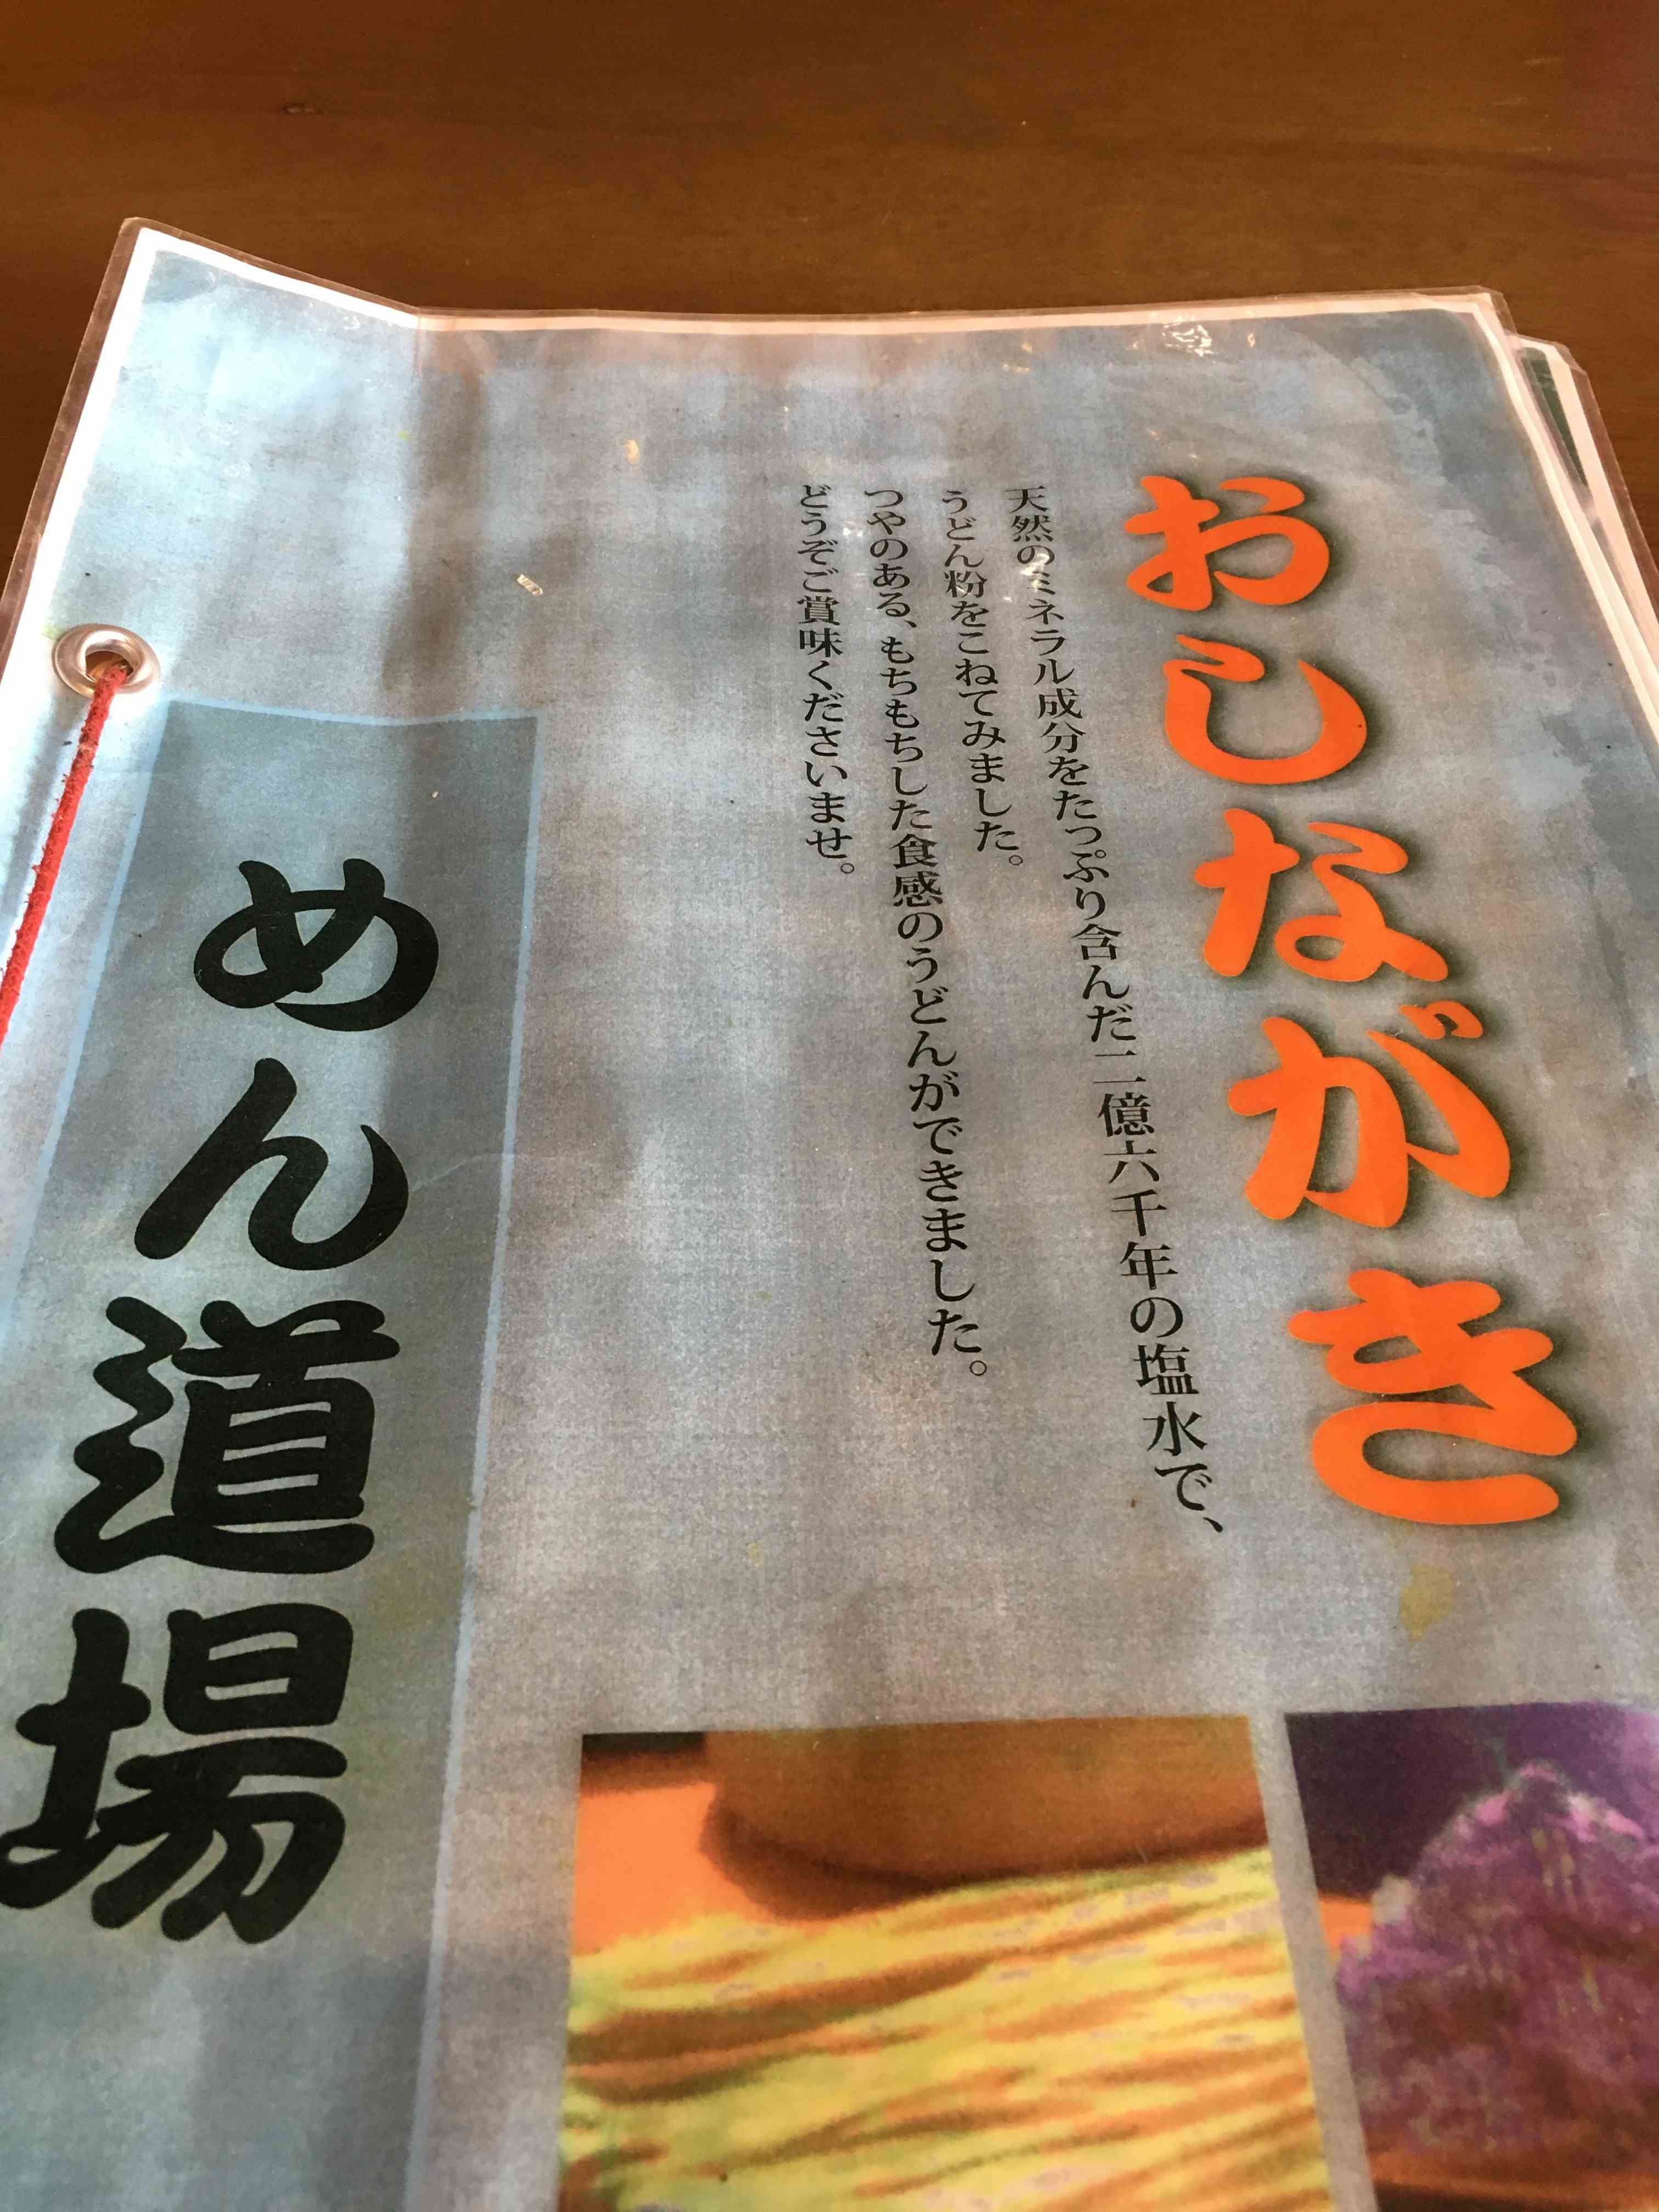 おしながき
天然のミネラル成分をたっぷり含んだ二億六千年の塩水で、
うどん粉をこねてみました。
つやのある、もちもちした食感のうどんができました。
どうぞご賞味くださいませ。
めん道場